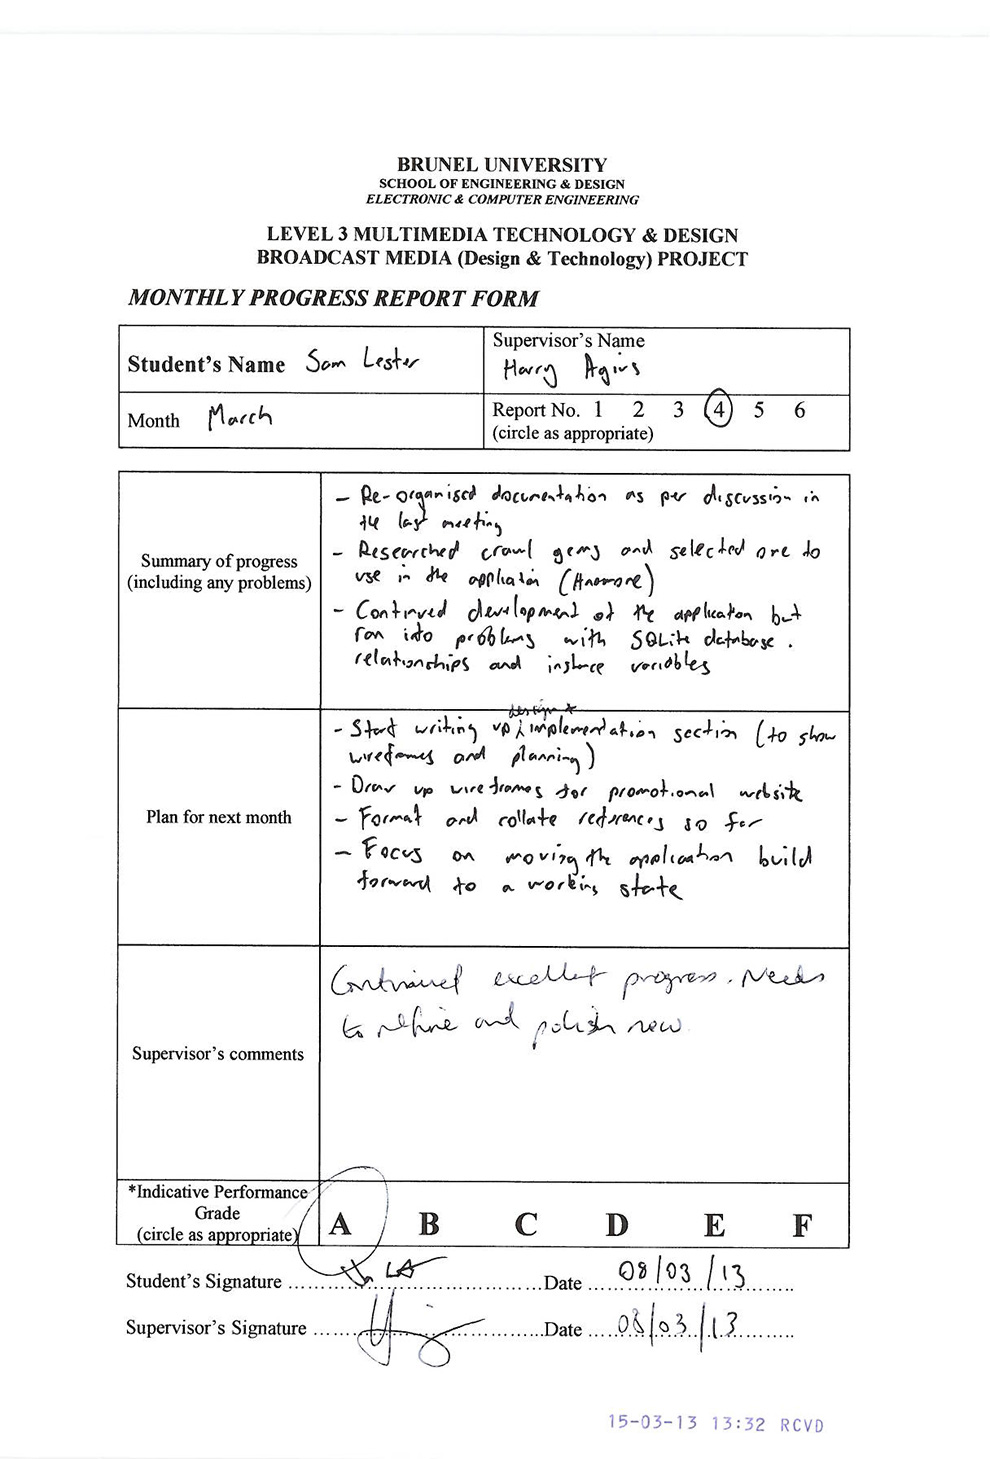 BRUNEL UNIVERSITY
SCHOOL OF ENGINEERING & DESIGN
ELECTRONIC & COMPUTER ENGINEERING
LEVEL 3 MULTIMEDIA TECHNOLOGY & DESIGN
BROADCAST MEDIA (Design & Technology) PROJECT
MONTHLY PROGRESS REPORT FORM
Student's Name Sam Lester
Supervisor's Name
Harry Agius
Month March
Report No. 1 2 3 4 5 6
(circle as appropriate)
Summary of progress
(including any problems)
- Re-organised documentation as per discussion in
the last meeting
- Researched crawl gems and selected one to
use in the application (Anemone)
- Continued development of the application but
ran into problems with SQLite database.
relationships and instance variables
Plan for next month
design +
- Start writing up implementation section (to show
wireframes and planning)
- Draw up wireframes for promotional website
- Format and collate references so far
- Focus on moving the application build
forward to a working state
Supervisor's comments
Continued excellent progress. Needs
to refine and polish now.
*Indicative Performance
Grade
(circle as appropriate)
A B C D E F
Student's Signature Date 08/03/13
Supervisor's Signature Date 08/03/13
15-03-13 13:32 RCVD